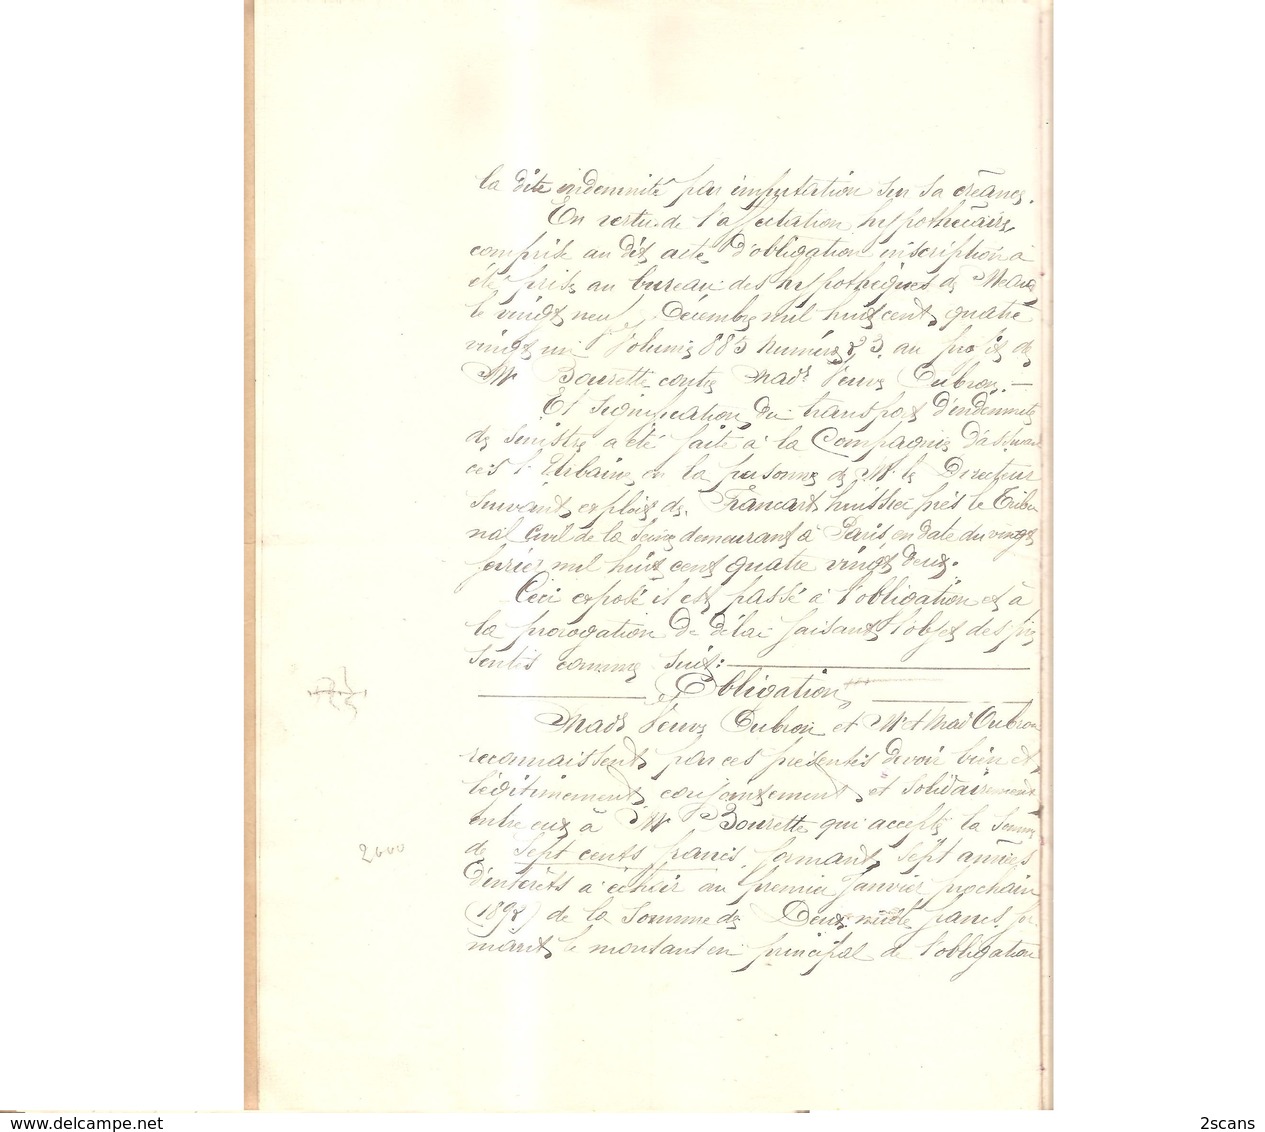 la dite indemnité par imputation sur sa créance.
En vertu de l'affectation hypothécaire
comprise au dit acte d'obligation inscription a
été prise au bureau des hypothèques de Meaux
le vingt neuf Décembre mil huit cent quatre
vingt un Volume 883 numéro 23. au profit de
Mr Bourette contre Made Veuve Oubron. —
Et signification du transport d'indemnité
de sinistre a été faite à la Compagnie d'assuran
ces l'Urbaine en la personne de Mr. le Directeur
suivant exploit de Francart huissier près le Tribu
nal Civil de la Seine demeurant à Paris, en date du vingt
février mil huit cent quatre vingt deux.
Ceci exposé il est passé à l'obligation et à
la prorogation de délai faisant l'objet des pré
sentes comme suit:
Obligation
Made Veuve Oubron et Mr et Made Oubron
reconnaissent par ces présentes devoir bien et
légitimement, conjointement et solidairement
entre eux à Mr Bourette qui accepte la somme
de Sept cents francs, formant sept années
d'intérêts à échoir au premier Janvier prochain
(1892) de la somme de Deux mille francs for
mant le montant en principal de l'obligation
2000
www.delcampe.net
2scans